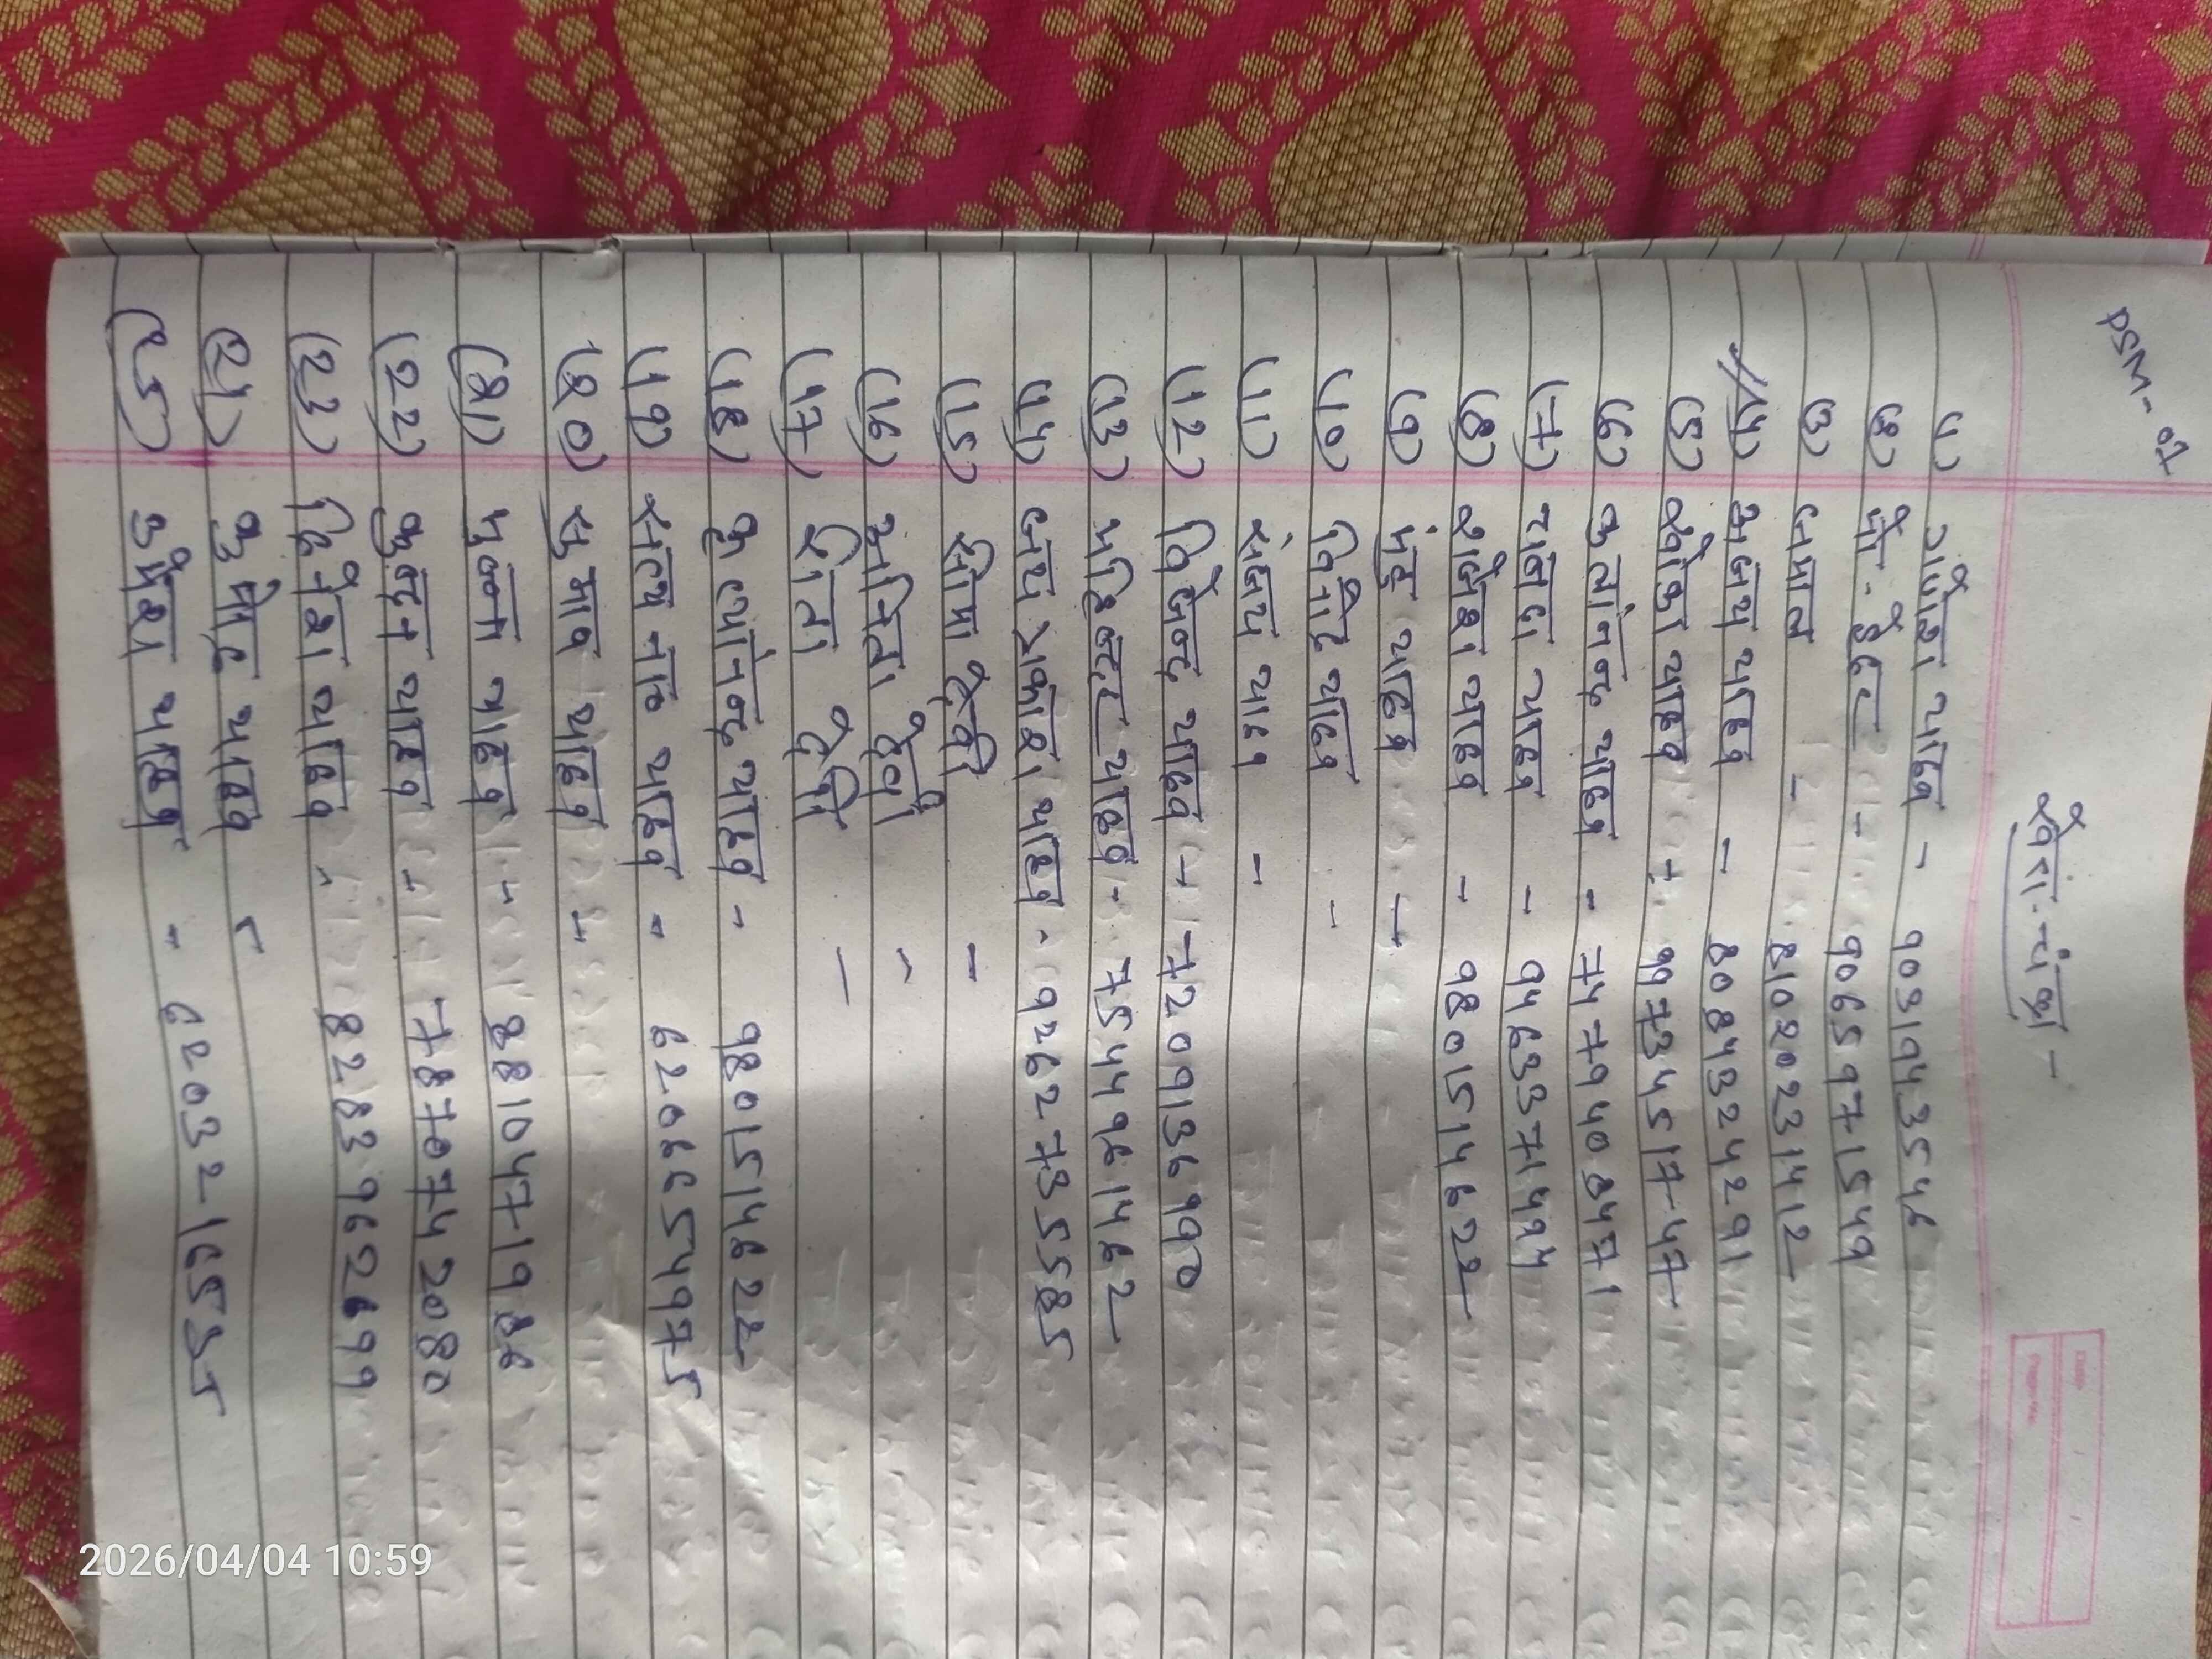 PSM-07
(1) गणेश यादव - 9031943546
(2) मो- हैदर - 9065971549
(3) जमाल - 81020231412
(4) अजय यादव - 8084324291
(5) यादव - 9973451747
(6) यादव - 7479408471
(7) यादव - 9463371494
(8) यादव - 9801514622
(9) मंटु यादव -
(10) विनोद यादव -
(11) संजय यादव -
(12) विजेन्द्र यादव - 7209136990
(13) यादव - 7544961462
(14) जय प्रकाश यादव - 9262735585
(15) सिमा देवी -
(16) अनिता देवी -
(17) देवी -
(18) यादव - 9801514622
(19) सत्य यादव - 6206654975
(20) यादव -
(21) यादव - 8810471986
(22) कुन्दन यादव - 7870742080
(23) दिनेश यादव - 8283962699
यादव -
(25) उमेश यादव - 6203216535
2026/04/04 10:59